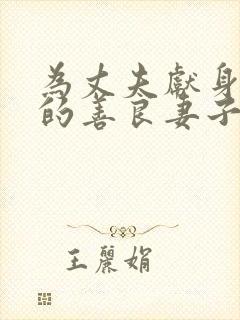 為丈夫獻身
的善良妻子
王麗娟